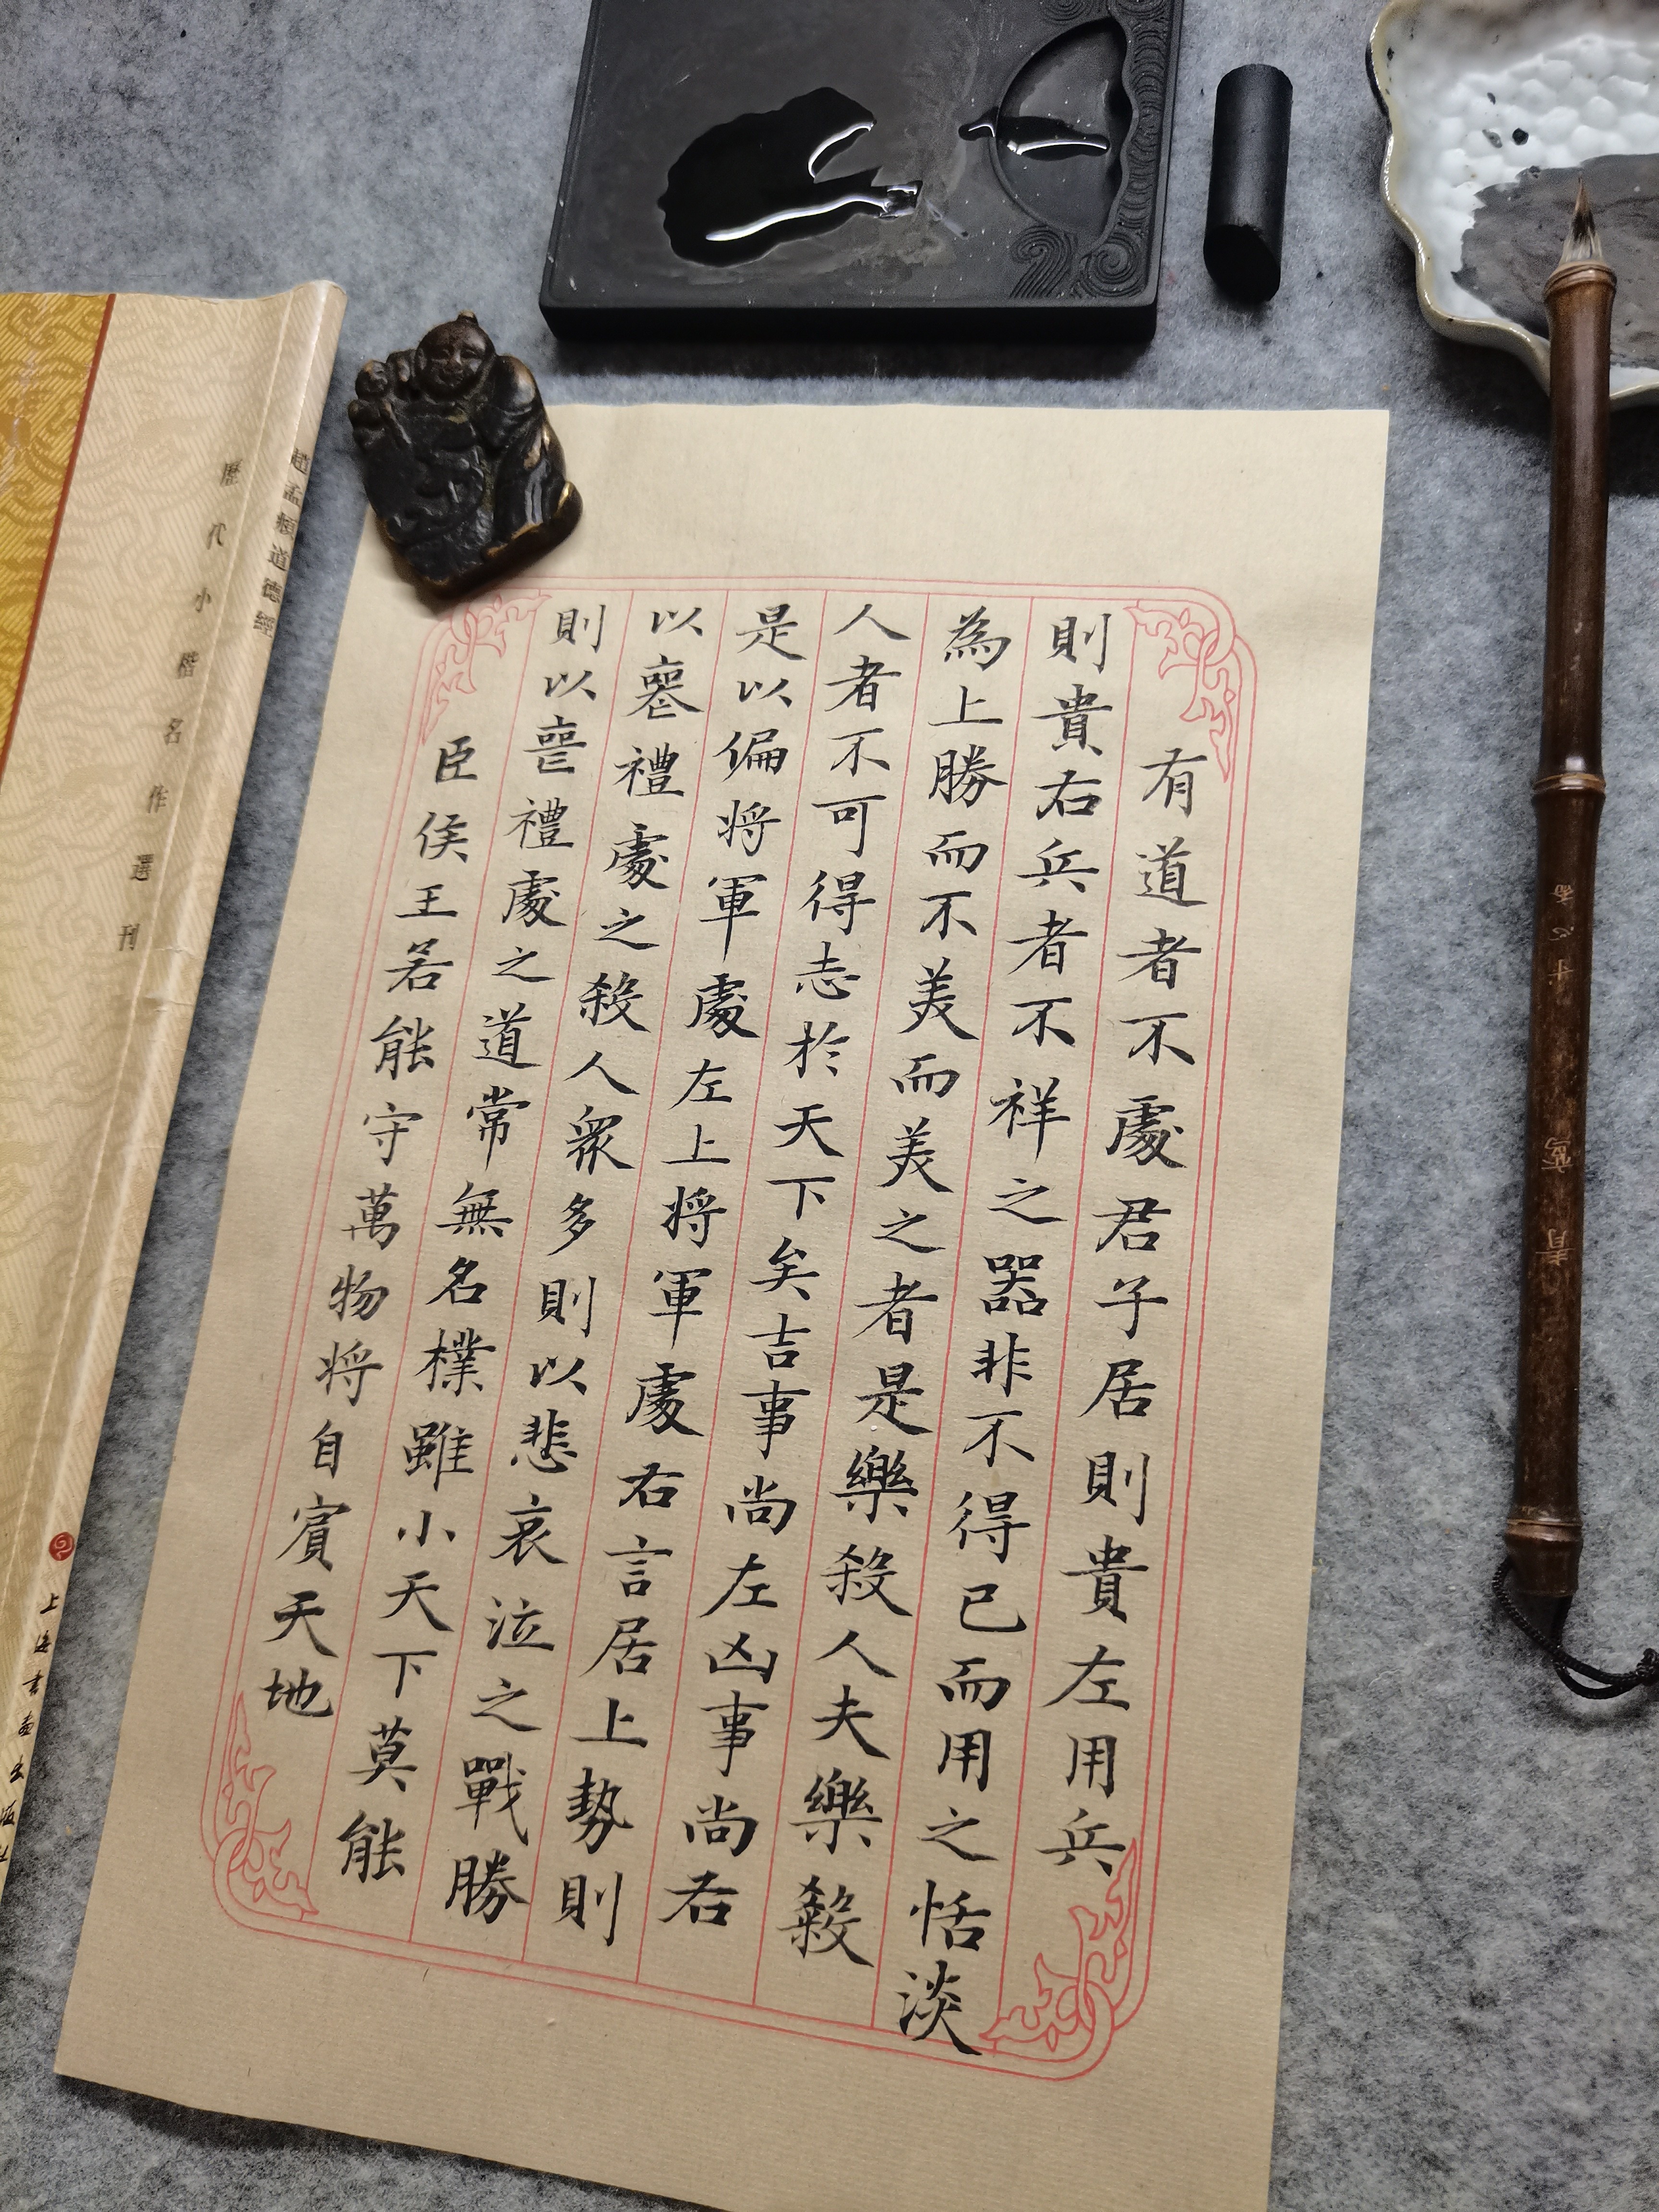 有道者不處君子居則貴左用兵
則貴右兵者不祥之器非不得已而用之恬淡
為上勝而不美而美之者是樂殺人夫樂殺
人者不可得志於天下矣吉事尚左凶事尚右
是以偏将軍處左上将軍處右言居上勢則
以喪禮處之殺人衆多則以悲哀泣之戰勝
則以喪禮處之道常無名樸雖小天下莫能
臣侯王若能守萬物将自賓天地
歷代小楷名作選刊
趙孟頫道德經
上海書畫出版社